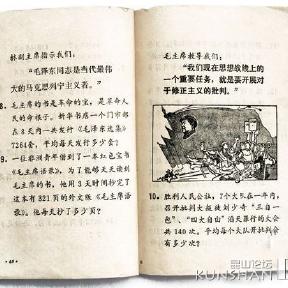 林副主席指示我们：
“毛泽东同志是当代最伟
大的马克思列宁主义者。”
8. 毛主席的书是革命的宝，是革命人
民的命根子。新华书店一个门市部
在8天内一共发行《毛泽东选集》
7264套，平均每天发行多少套？
9. 一位非洲青年借到了一本红色宝书
《毛主席语录》，为了能够天天读到
毛主席的书，他用3天时间抄完了
这本有321页的外文版《毛主席语
录》。他每天抄了多少页？
· 48 ·
毛主席教导我们：
“我们现在思想战线上的
一个重要任务，就是要开展对
于修正主义的批判。”
10. 胜利人民公社，7个大队在一年内，
召开批判大叛徒刘少奇“三自一
包”、“四大自由”滔天罪行的大会
共140次，平均每个大队开批判会
有多少次？
昆山论坛
KUNSHAN